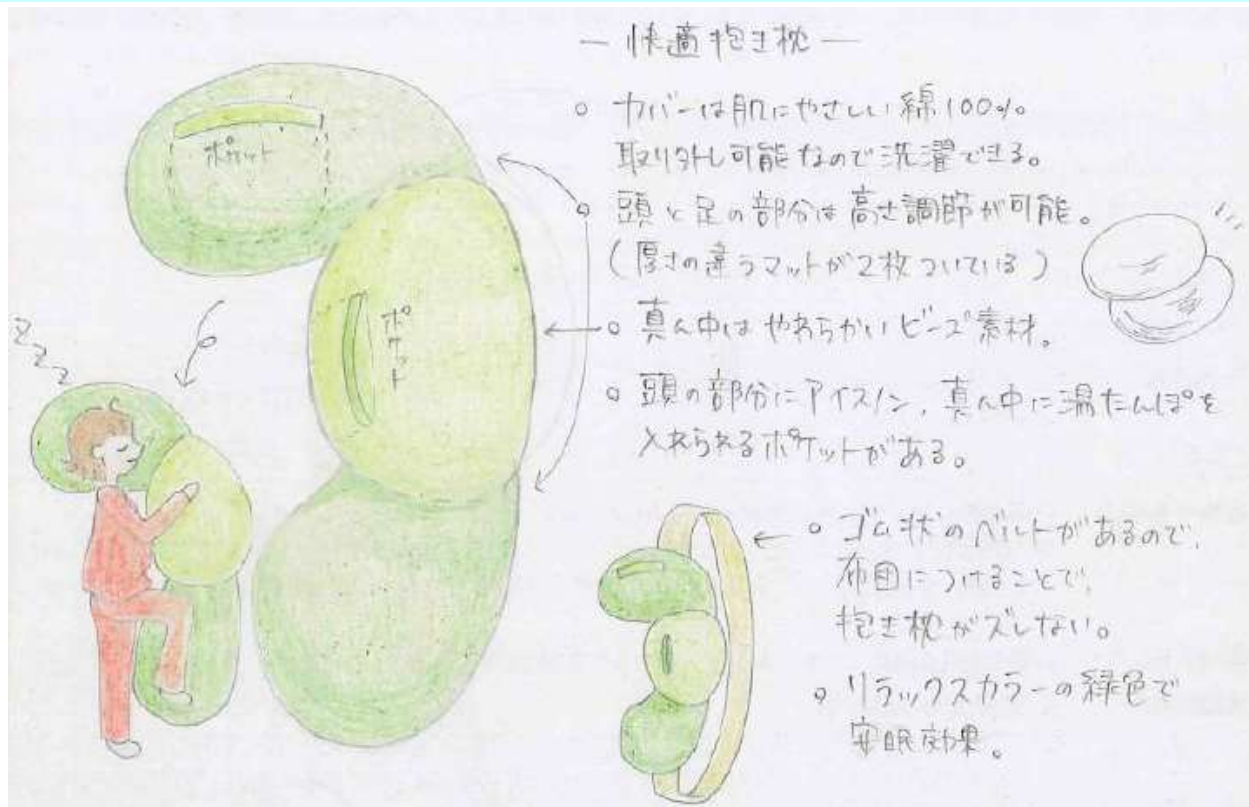 ― 快適抱き枕 ―
ポケット
ポケット
zzz
○ カバーは肌にやさしい綿100%
取り外し可能なので洗濯できる。
○ 頭と足の部分は高さ調節が可能。
(厚さの違うマットが2枚ついている)
○ 真ん中はやわらかいビーズ素材。
○ 頭の部分にアイスノン、真ん中に湯たんぽを
入れられるポケットがある。
○ ゴム状のベルトがあるので、
布団につけることで、
抱き枕がズレない。
○ リラックスカラーの緑色で
安眠効果。